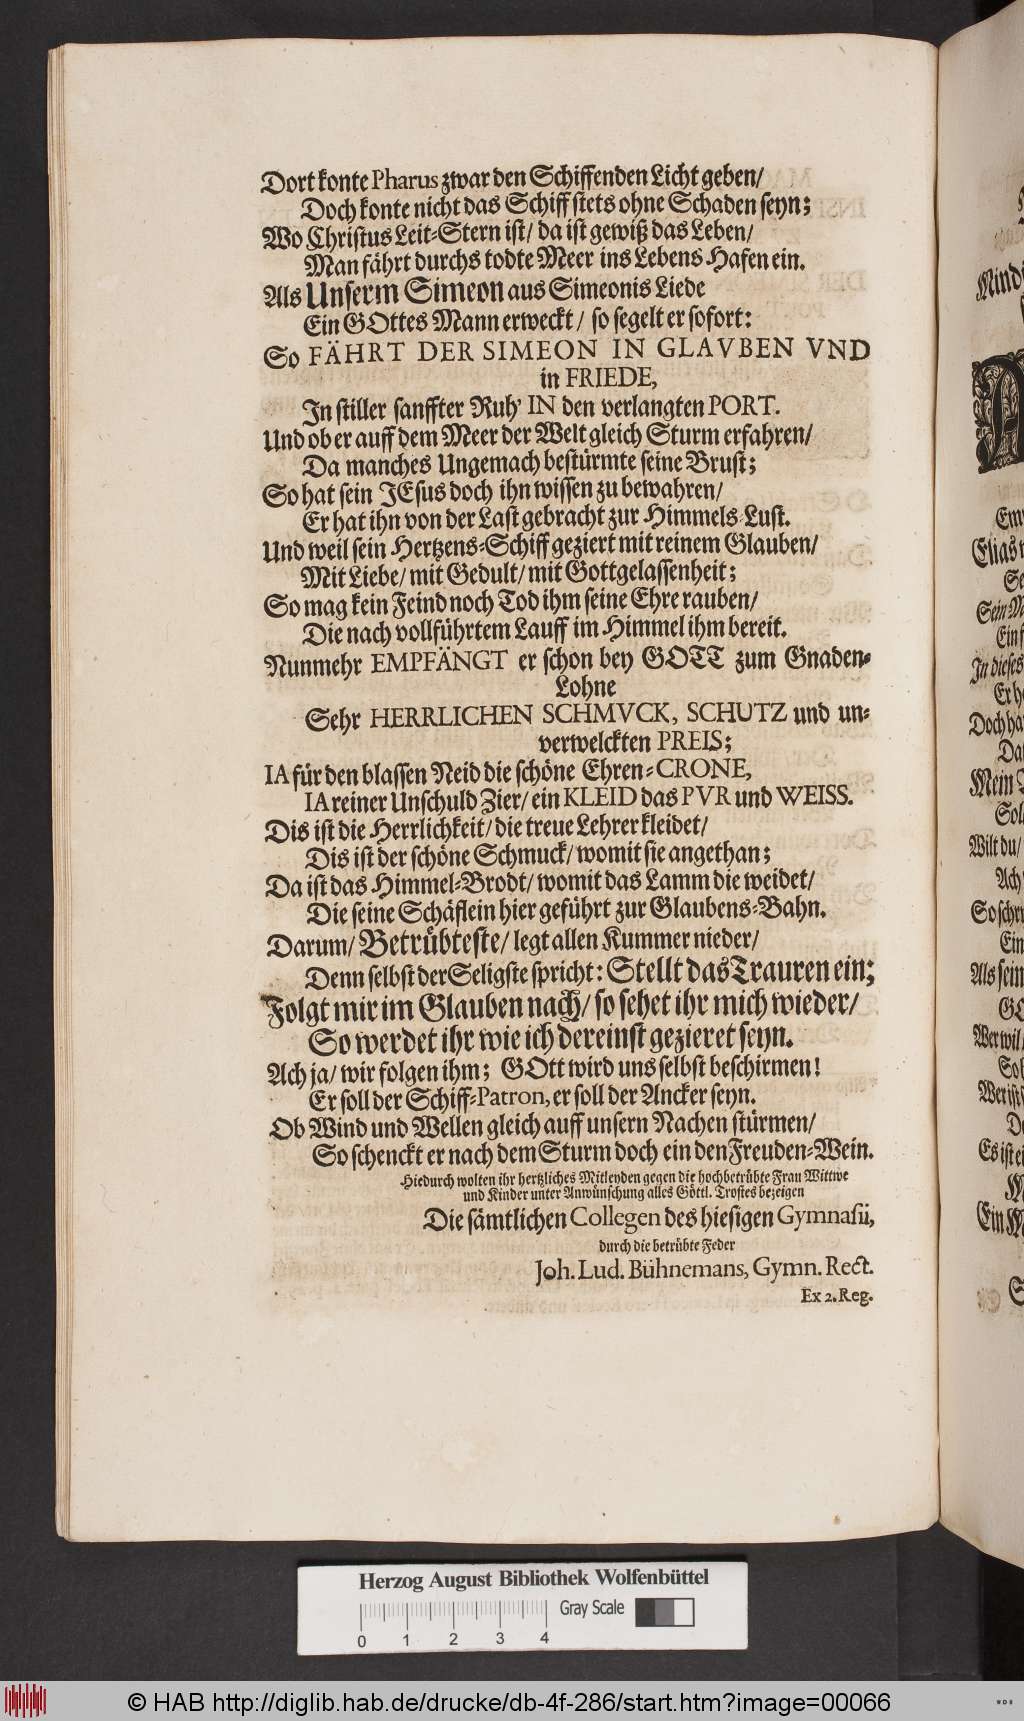 Dort konte Pharus zwar den Schiffenden Licht geben/
Doch konte nicht das Schiff stets ohne Schaden seyn;
Wo Christus Leit-Stern ist/ da ist gewiß das Leben/
Man fährt durchs todte Meer ins Lebens Hafen ein.
Als Unserm Simeon aus Simeonis Liede
Ein GOttes Mann erweckt/ so segelt er sofort:
So FÄHRT DER SIMEON IN GLAVBEN VND
in FRIEDE,
In stiller sanffter Ruh' IN den verlangten PORT.
Und ob er auff dem Meer der Welt gleich Sturm erfahren/
Da manches Ungemach bestürmte seine Brust;
So hat sein JEsus doch ihn wissen zu bewahren/
Er hat ihn von der Last gebracht zur Himmels-Lust.
Und weil sein Hertzens-Schiff geziert mit reinem Glauben/
Mit Liebe/ mit Gedult/ mit Gottgelassenheit;
So mag kein Feind noch Tod ihm seine Ehre rauben/
Die nach vollführtem Lauff im Himmel ihm bereit.
Nunmehr EMPFÄNGT er schon bey GOTT zum Gnaden-
Lohne
Sehr HERRLICHEN SCHMVCK, SCHUTZ und un-
verwelckten PREIS;
IA für den blassen Neid die schöne Ehren-CRONE,
IA reiner Unschuld Zier/ ein KLEID das PVR und WEISS.
Dis ist die Herrlichkeit/ die treue Lehrer kleidet/
Dis ist der schöne Schmuck/ womit sie angethan;
Da ist das Himmel-Brodt/ womit das Lamm die weidet/
Die seine Schäflein hier geführt zur Glaubens-Bahn.
Darum/ Betrübteste/ legt allen Kummer nieder/
Denn selbst der Seligste spricht: Stellt das Trauren ein;
Folgt mir im Glauben nach/ so sehet ihr mich wieder/
So werdet ihr wie ich dereinst gezieret seyn.
Ach ja/ wir folgen ihm; GOtt wird uns selbst beschirmen!
Er soll der Schiff-Patron, er soll der Ancker seyn.
Ob Wind und Wellen gleich auff unsern Nachen stürmen/
So schenckt er nach dem Sturm doch ein den Freuden-Wein.
Hiedurch wolten ihr hertzliches Mitleyden gegen die hochbetrübte Frau Wittwe
und Kinder unter Anwünschung alles Göttl. Trostes bezeigen
Die sämtlichen Collegen des hiesigen Gymnasii,
durch die betrübte Feder
Joh. Lud. Bühnemans, Gymn. Rect.
Ex 2. Reg.
Herzog August Bibliothek Wolfenbüttel
Gray Scale
0 1 2 3 4
© HAB http://diglib.hab.de/drucke/db-4f-286/start.htm?image=00066